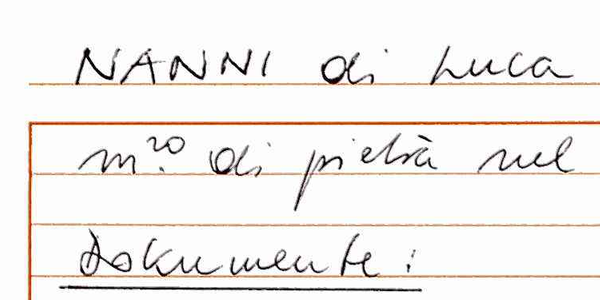 NANNI di Luca
m.ro di pietra nel
Dokumente: